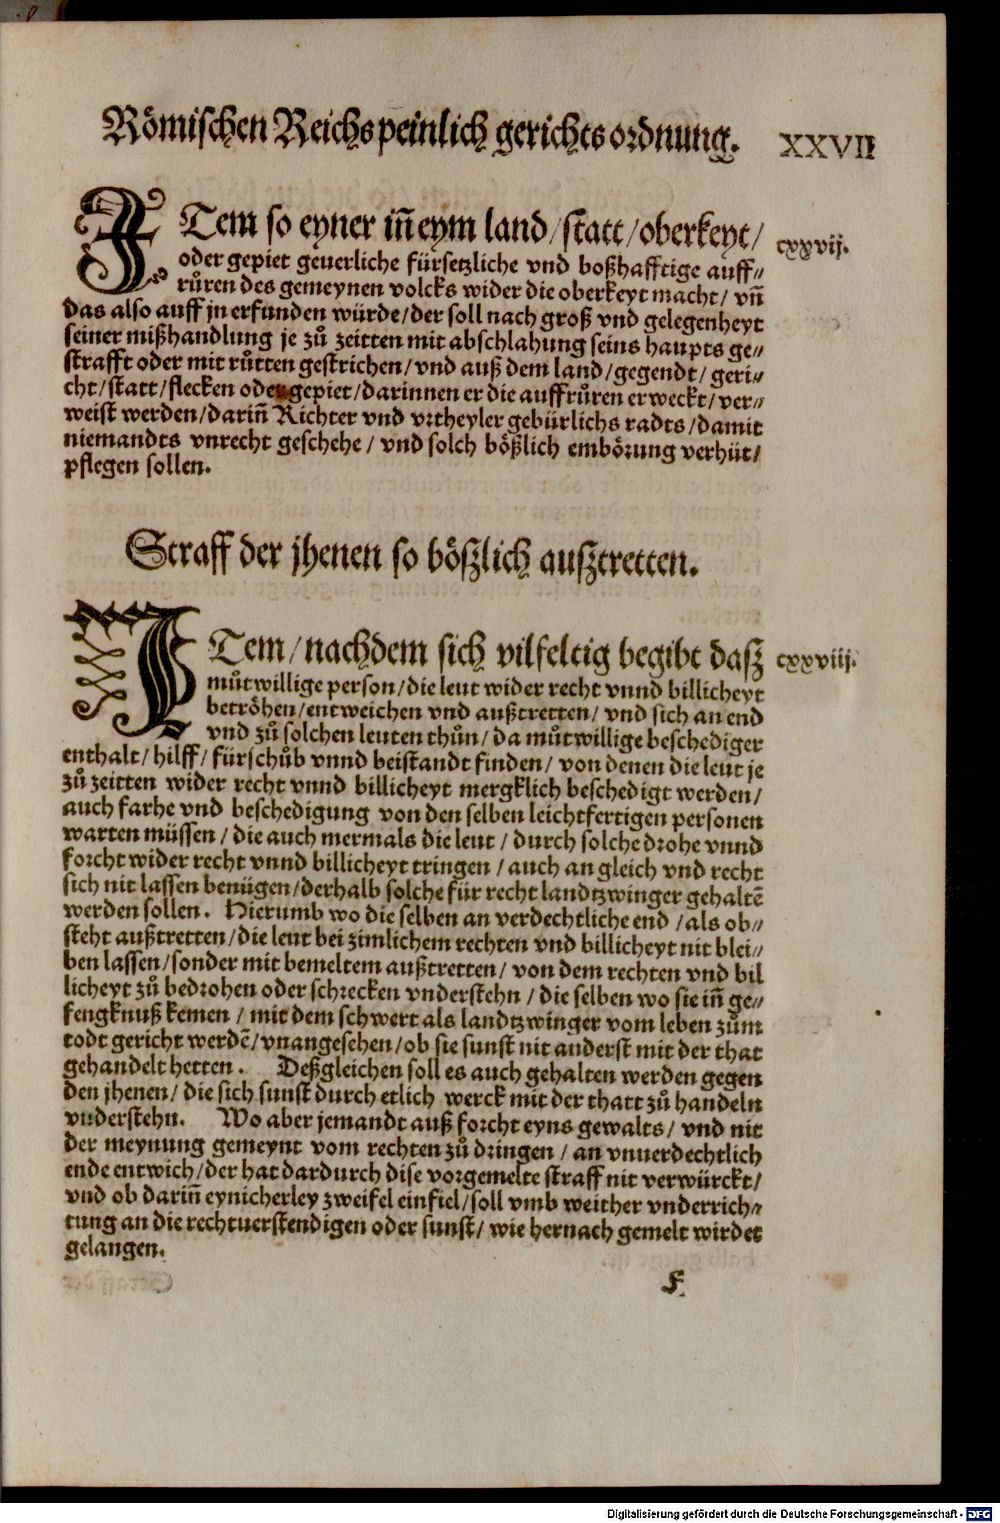 Römischen Reichs peinlich gerichts ordnung. XXVII
ITem so eyner iñ eym land/ statt/ oberkeyt/ cxxvij.
oder gepiet geuerliche fürsetzliche vnd boßhafftige auff⸗
růren des gemeynen volcks wider die oberkeyt macht/ vñ
das also auff jn erfunden würde/ der soll nach groß vnd gelegenheyt
seiner mißhandlung je zů zeitten mit abschlahung seins haupts ge⸗
strafft oder mit růtten gestrichen/ vnd auß dem land/ gegendt/ geri⸗
cht/ statt/ flecken oder gepiet/ darinnen er die auffrůren erweckt/ ver⸗
weist werden/ dariñ Richter vnd vrtheyler gebürlichs radts/ damit
niemandts vnrecht geschehe/ vnd solch bößlich embörung verhüt/
pflegen sollen.
Straff der jhenen so bößlich außtretten.
ITem/ nachdem sich vilfeltig begibt daß cxxviij.
můtwillige person/ die leut wider recht vnnd billicheyt
betröhen/ entweichen vnd außtretten/ vnd sich an end
vnd zů solchen leuten thůn/ da můtwillige beschediger
enthalt/ hilff/ fürschůb vnnd beistandt finden/ von denen die leut je
zů zeitten wider recht vnnd billicheyt mergklich beschedigt werden/
auch farhe vnd beschedigung von den selben leichtfertigen personen
warten müssen/ die auch mermals die leut/ durch solche drohe vnnd
forcht wider recht vnnd billicheyt tringen/ auch an gleich vnd recht
sich nit lassen benügen/ derhalb solche für recht landtzwinger gehaltẽ
werden sollen. Hierumb wo die selben an verdechtliche end/ als ob⸗
steht außtretten/ die leut bei zimlichem rechten vnd billicheyt nit blei⸗
ben lassen/ sonder mit bemeltem außtretten/ von dem rechten vnd bil
licheyt zů bedrohen oder schrecken vnderstehn/ die selben wo sie iñ ge⸗
fengknuß kemen/ mit dem schwert als landtzwinger vom leben zům
todt gericht werdẽ/ vnangesehen/ ob sie sunst nit anderst mit der that
gehandelt hetten. Deßgleichen soll es auch gehalten werden gegen
den jhenen/ die sich sunst durch etlich werck mit der thatt zů handeln
vnderstehn. Wo aber jemandt auß forcht eyns gewalts/ vnd nit
der meynung gemeynt vom rechten zů dringen/ an vnuerdechtlich
ende entwich/ der hat dardurch dise vorgemelte straff nit verwürckt/
vnd ob dariñ eynicherley zweifel einfiel/ soll vmb weither vnderrich⸗
tung an die rechtuerstendigen oder sunst/ wie hernach gemelt wirdet
gelangen.
F
Digitalisierung gefördert durch die Deutsche Forschungsgemeinschaft - DFG